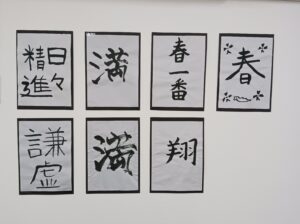 日々
精進
満
春一番
春
謙虚
満
翔